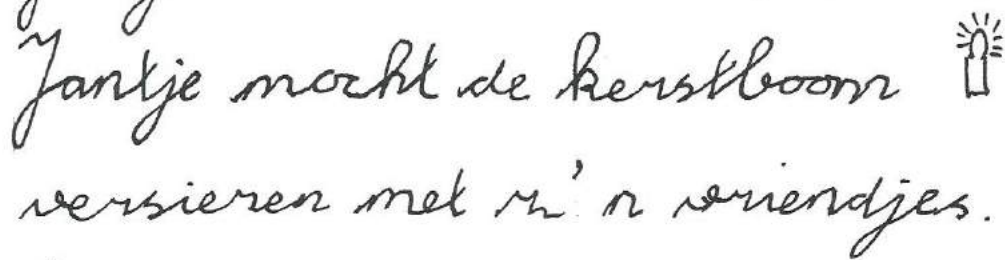 Jantje mocht de kerstboom
versieren met z'n vriendjes.